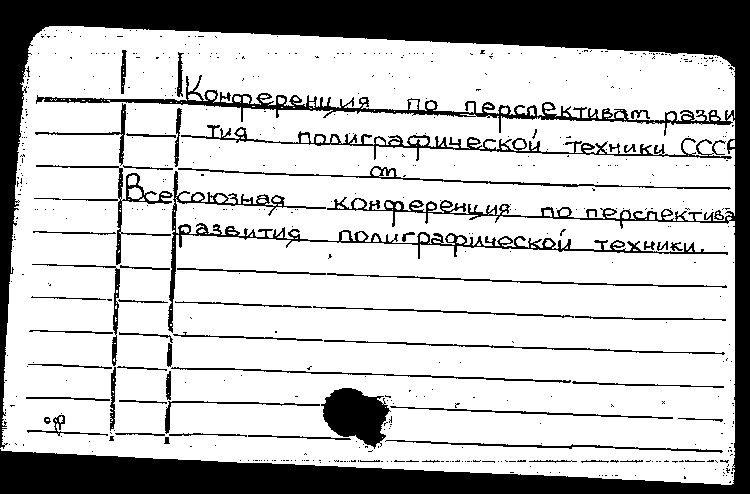 Конференция по перспективам разви
тия полиграфической техники СССР
см.
Всесоюзная конференция по перспектива
развития полиграфической техники.